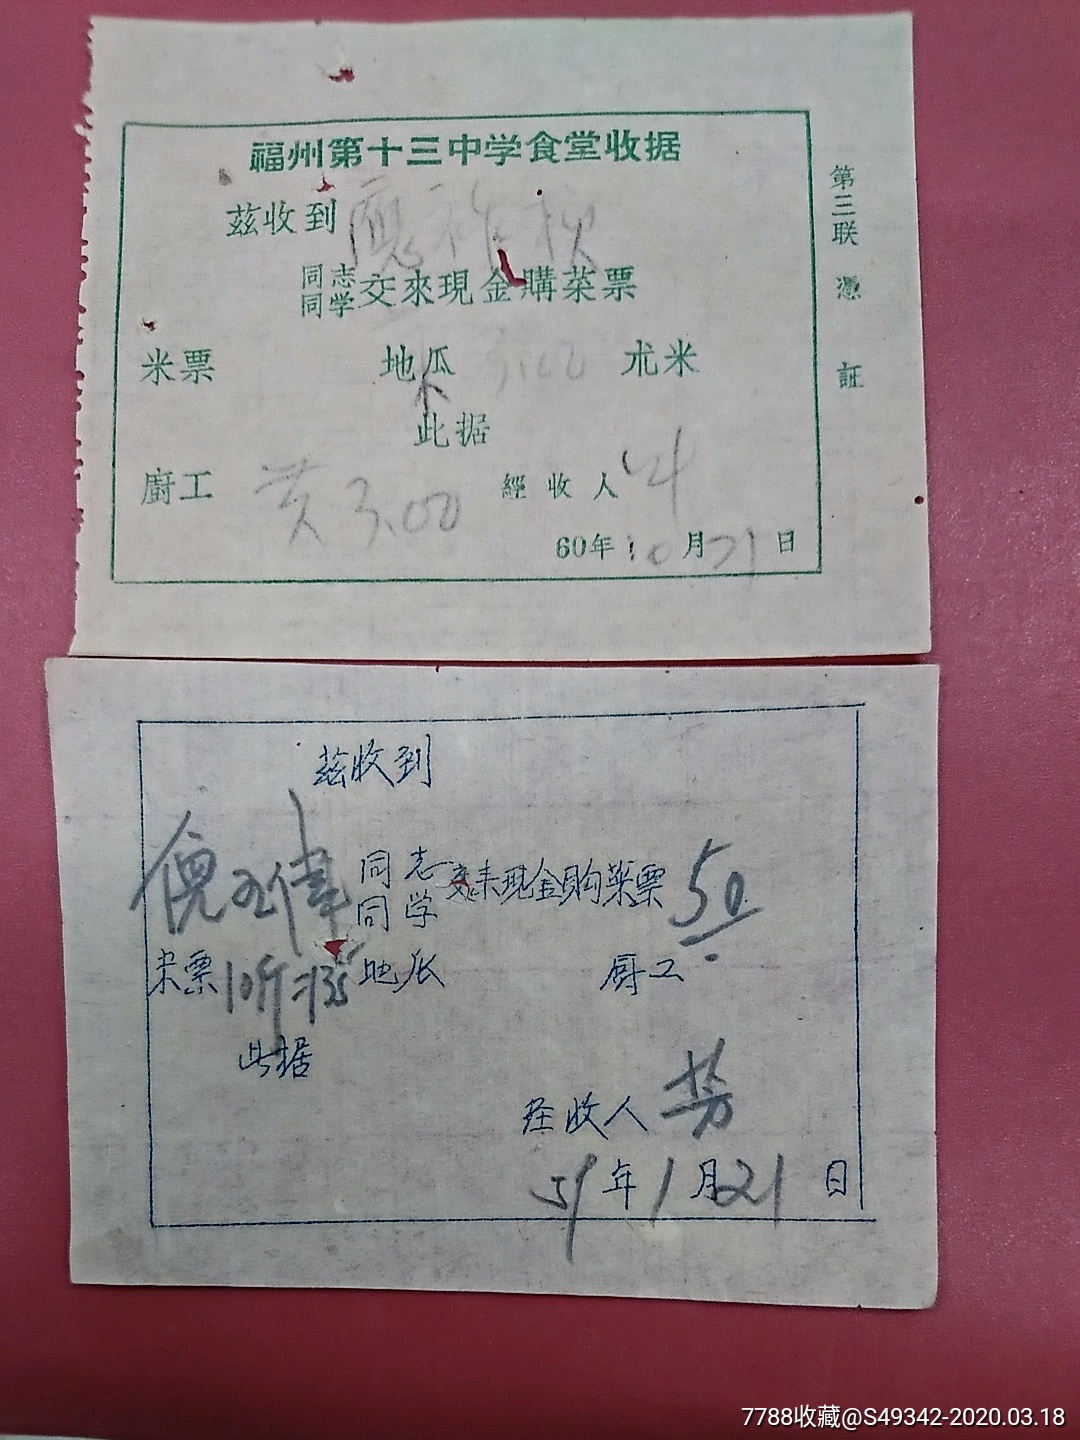 福州第十三中学食堂收据
兹收到
同志
同学
交來現金購菜票
米票 地瓜 朮米
此据
廚工 黄 3.00 經收人
60年10月21日
第三联 憑証
兹收到
倪玉偉 同志
同学
交来现金购菜票 50
米票 10斤 地瓜 厨工
此据
经收人 芳
59年1月21日
7788收藏@S49342-2020.03.18